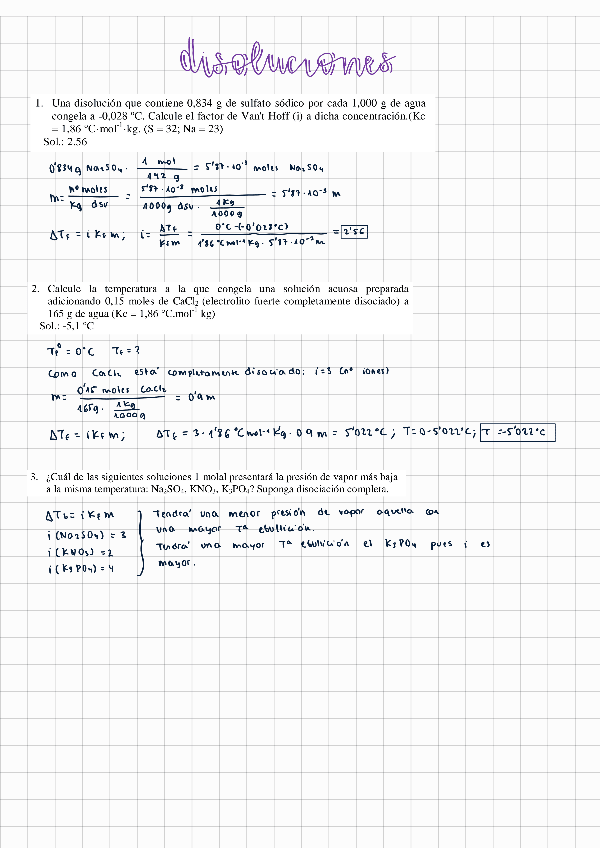 disoluciones
1. Una disolución que contiene 0,834 g de sulfato sódico por cada 1,000 g de agua
congela a -0,028 ºC. Calcule el factor de Van't Hoff (i) a dicha concentración.(Kc
= 1,86 ºC·mol⁻¹·kg. (S = 32; Na = 23)
Sol.: 2.56
0'834g Na₂SO₄ · 1 mol / 142 g = 5'87·10⁻³ moles Na₂SO₄
m = nº moles / Kg dsv = 5'87·10⁻³ moles / 1000g dsv · 1Kg / 1000g = 5'87·10⁻³ m
ΔTf = i Kf m; i = ΔTf / Kf m = 0ºC-(-0'028ºC) / 1'86 ºC mol⁻¹ Kg · 5'87·10⁻³ m = 2'56
2. Calcule la temperatura a la que congela una solución acuosa preparada
adicionando 0,15 moles de CaCl₂ (electrolito fuerte completamente disociado) a
165 g de agua (Kc = 1,86 ºC.mol⁻ kg)
Sol.: -5,1 ºC
Tfº = 0ºC Tf = ?
Como CaCl₂ está completamente disociado: i=3 (nº iones)
m = 0'15 moles CaCl₂ / 165g · 1Kg / 1000g = 0'9 m
ΔTf = i Kf m; ΔTf = 3 · 1'86 ºC mol⁻¹ Kg · 0'9 m = 5'022ºC; T = 0-5'022ºC; T = -5'022ºC
3. ¿Cuál de las siguientes soluciones 1 molal presentará la presión de vapor más baja
a la misma temperatura: Na₂SO₄, KNO₃, K₃PO₄? Suponga disociación completa.
ΔTb = i Kf m
i (Na₂SO₄) = 3
i (KNO₃) = 2
i (K₃PO₄) = 4
Tendrá una menor presión de vapor aquella con
una mayor Tª ebullición.
Tendrá una mayor Tª ebullición el K₃PO₄ pues i es
mayor.